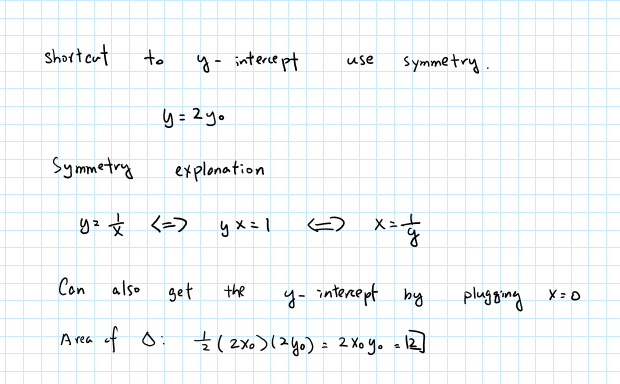 shortcut to y-intercept use symmetry.
y = 2y₀
Symmetry explanation
y = 1/x <=> yx = 1 <=> x = 1/y
Can also get the y-intercept by plugging x=0
Area of Δ: 1/2 (2x₀)(2y₀) = 2x₀y₀ = 2